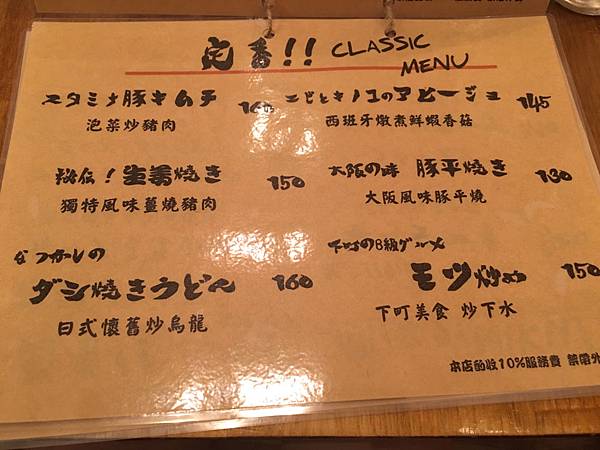 定番!! CLASSIC MENU
スタミナ豚キムチ 160
泡菜炒豬肉
エビとキノコのアヒージョ 145
西班牙燉煮鮮蝦香菇
秘伝!生姜焼き 150
獨特風味薑燒豬肉
大阪の味 豚平焼き 130
大阪風味豚平燒
なつかしの
ダシ焼きうどん 160
日式懷舊炒烏龍
下町のB級グルメ
モツ炒め 150
下町美食 炒下水
本店酌收10%服務費 禁帶外